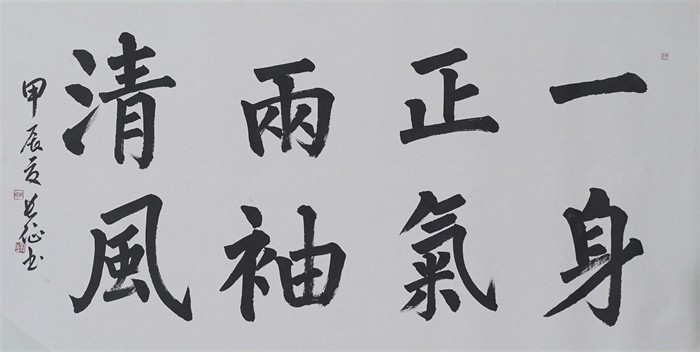 一身
正氣
兩袖
清風
甲辰夏長征書